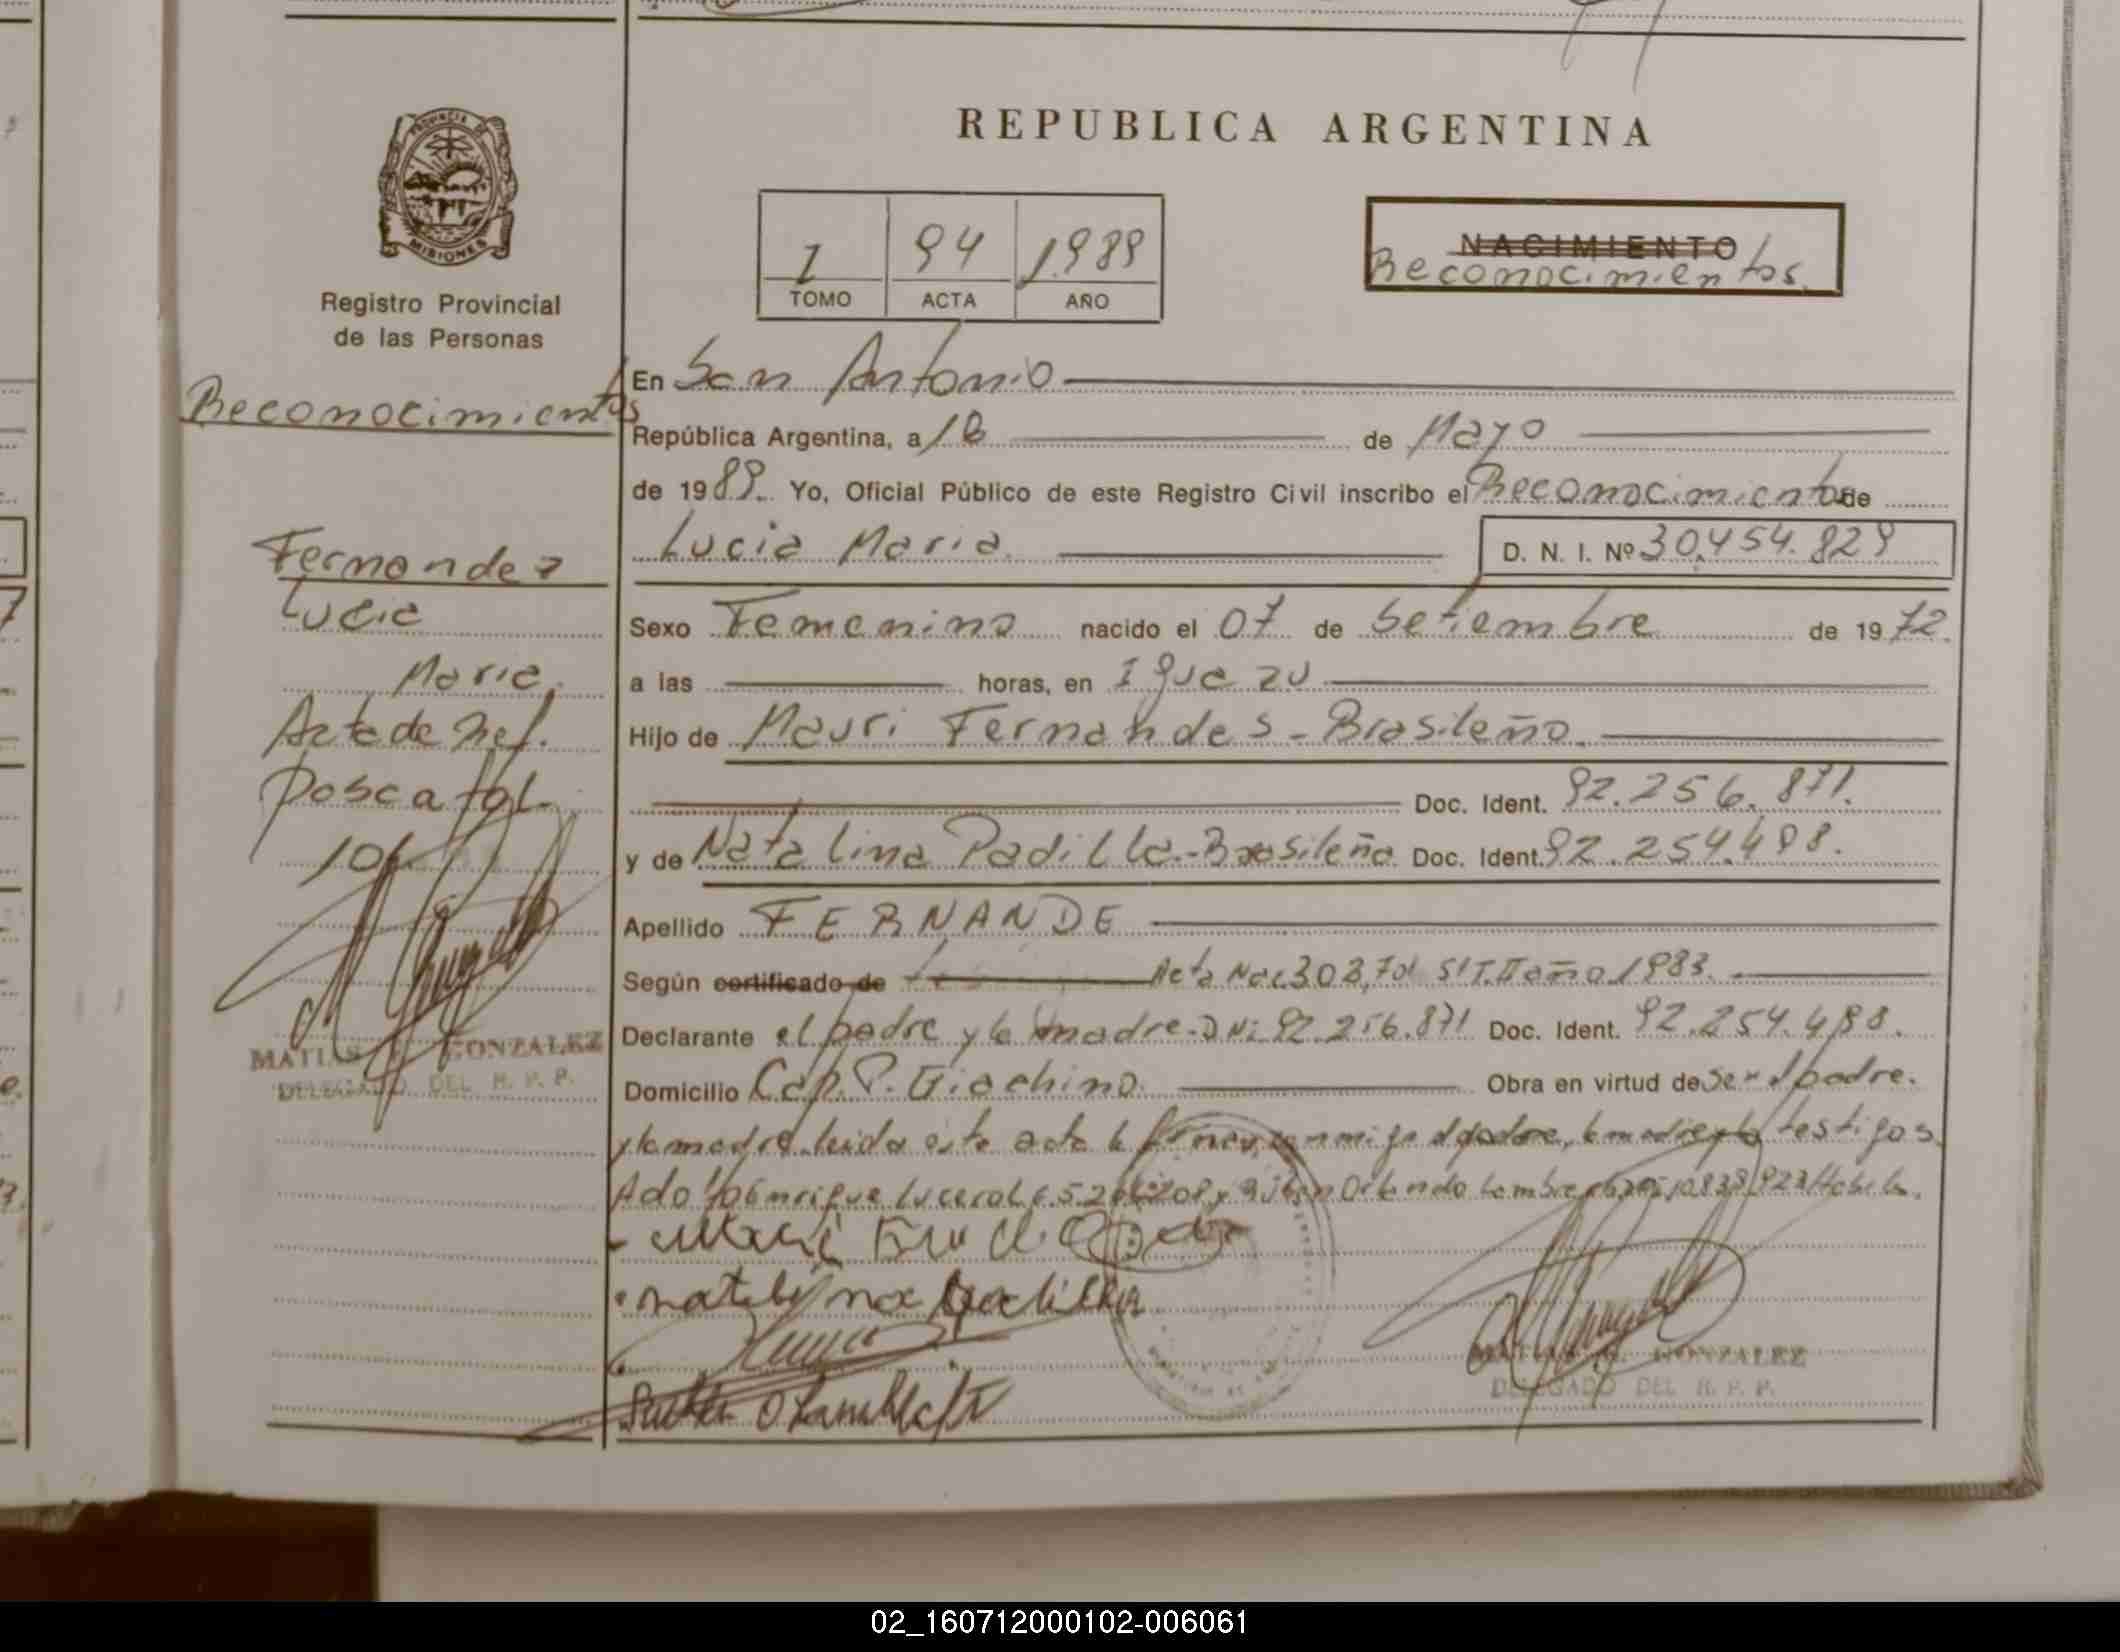 REPUBLICA ARGENTINA
PROVINCIA DE
MISIONES
Registro Provincial
de las Personas
1 94 1989
TOMO ACTA AÑO
NACIMIENTO
Reconocimientos.
Reconocimientos
En San Antonio
República Argentina, a 18 de Mayo
de 1989. Yo, Oficial Público de este Registro Civil inscribo el Reconocimiento de
Lucia Maria. D. N. I. Nº 30.454.829
Fernandez
Lucia
Maria.
Acta de Ref.
Posca fol.
101
MATIAS GONZALEZ
DELEGADO DEL R. P. P.
Sexo Femenino nacido el 07 de Setiembre de 1972.
a las horas, en Iguazu
Hijo de Mauri Fernandes - Brasileño.
Doc. Ident. 92.256.871.
y de Natalina Padilla - Brasileña Doc. Ident. 92.254.498.
Apellido FERNANDE
Según certificado de Acta Nac. 303, fol 51 T. II año 1983.
Declarante el padre y la madre - DNi 92.256.871 Doc. Ident. 92.254.498.
Domicilio Cap. P. Giachino. Obra en virtud de ser el padre.
y la madre leida este acta la firman conmigo el padre, la madre y testigos
Adolfo Enrique Lucero L.E. 5.2 y Ruben Orlando
natalina padilla
MATIAS GONZALEZ
DELEGADO DEL R. P. P.
02_160712000102-006061